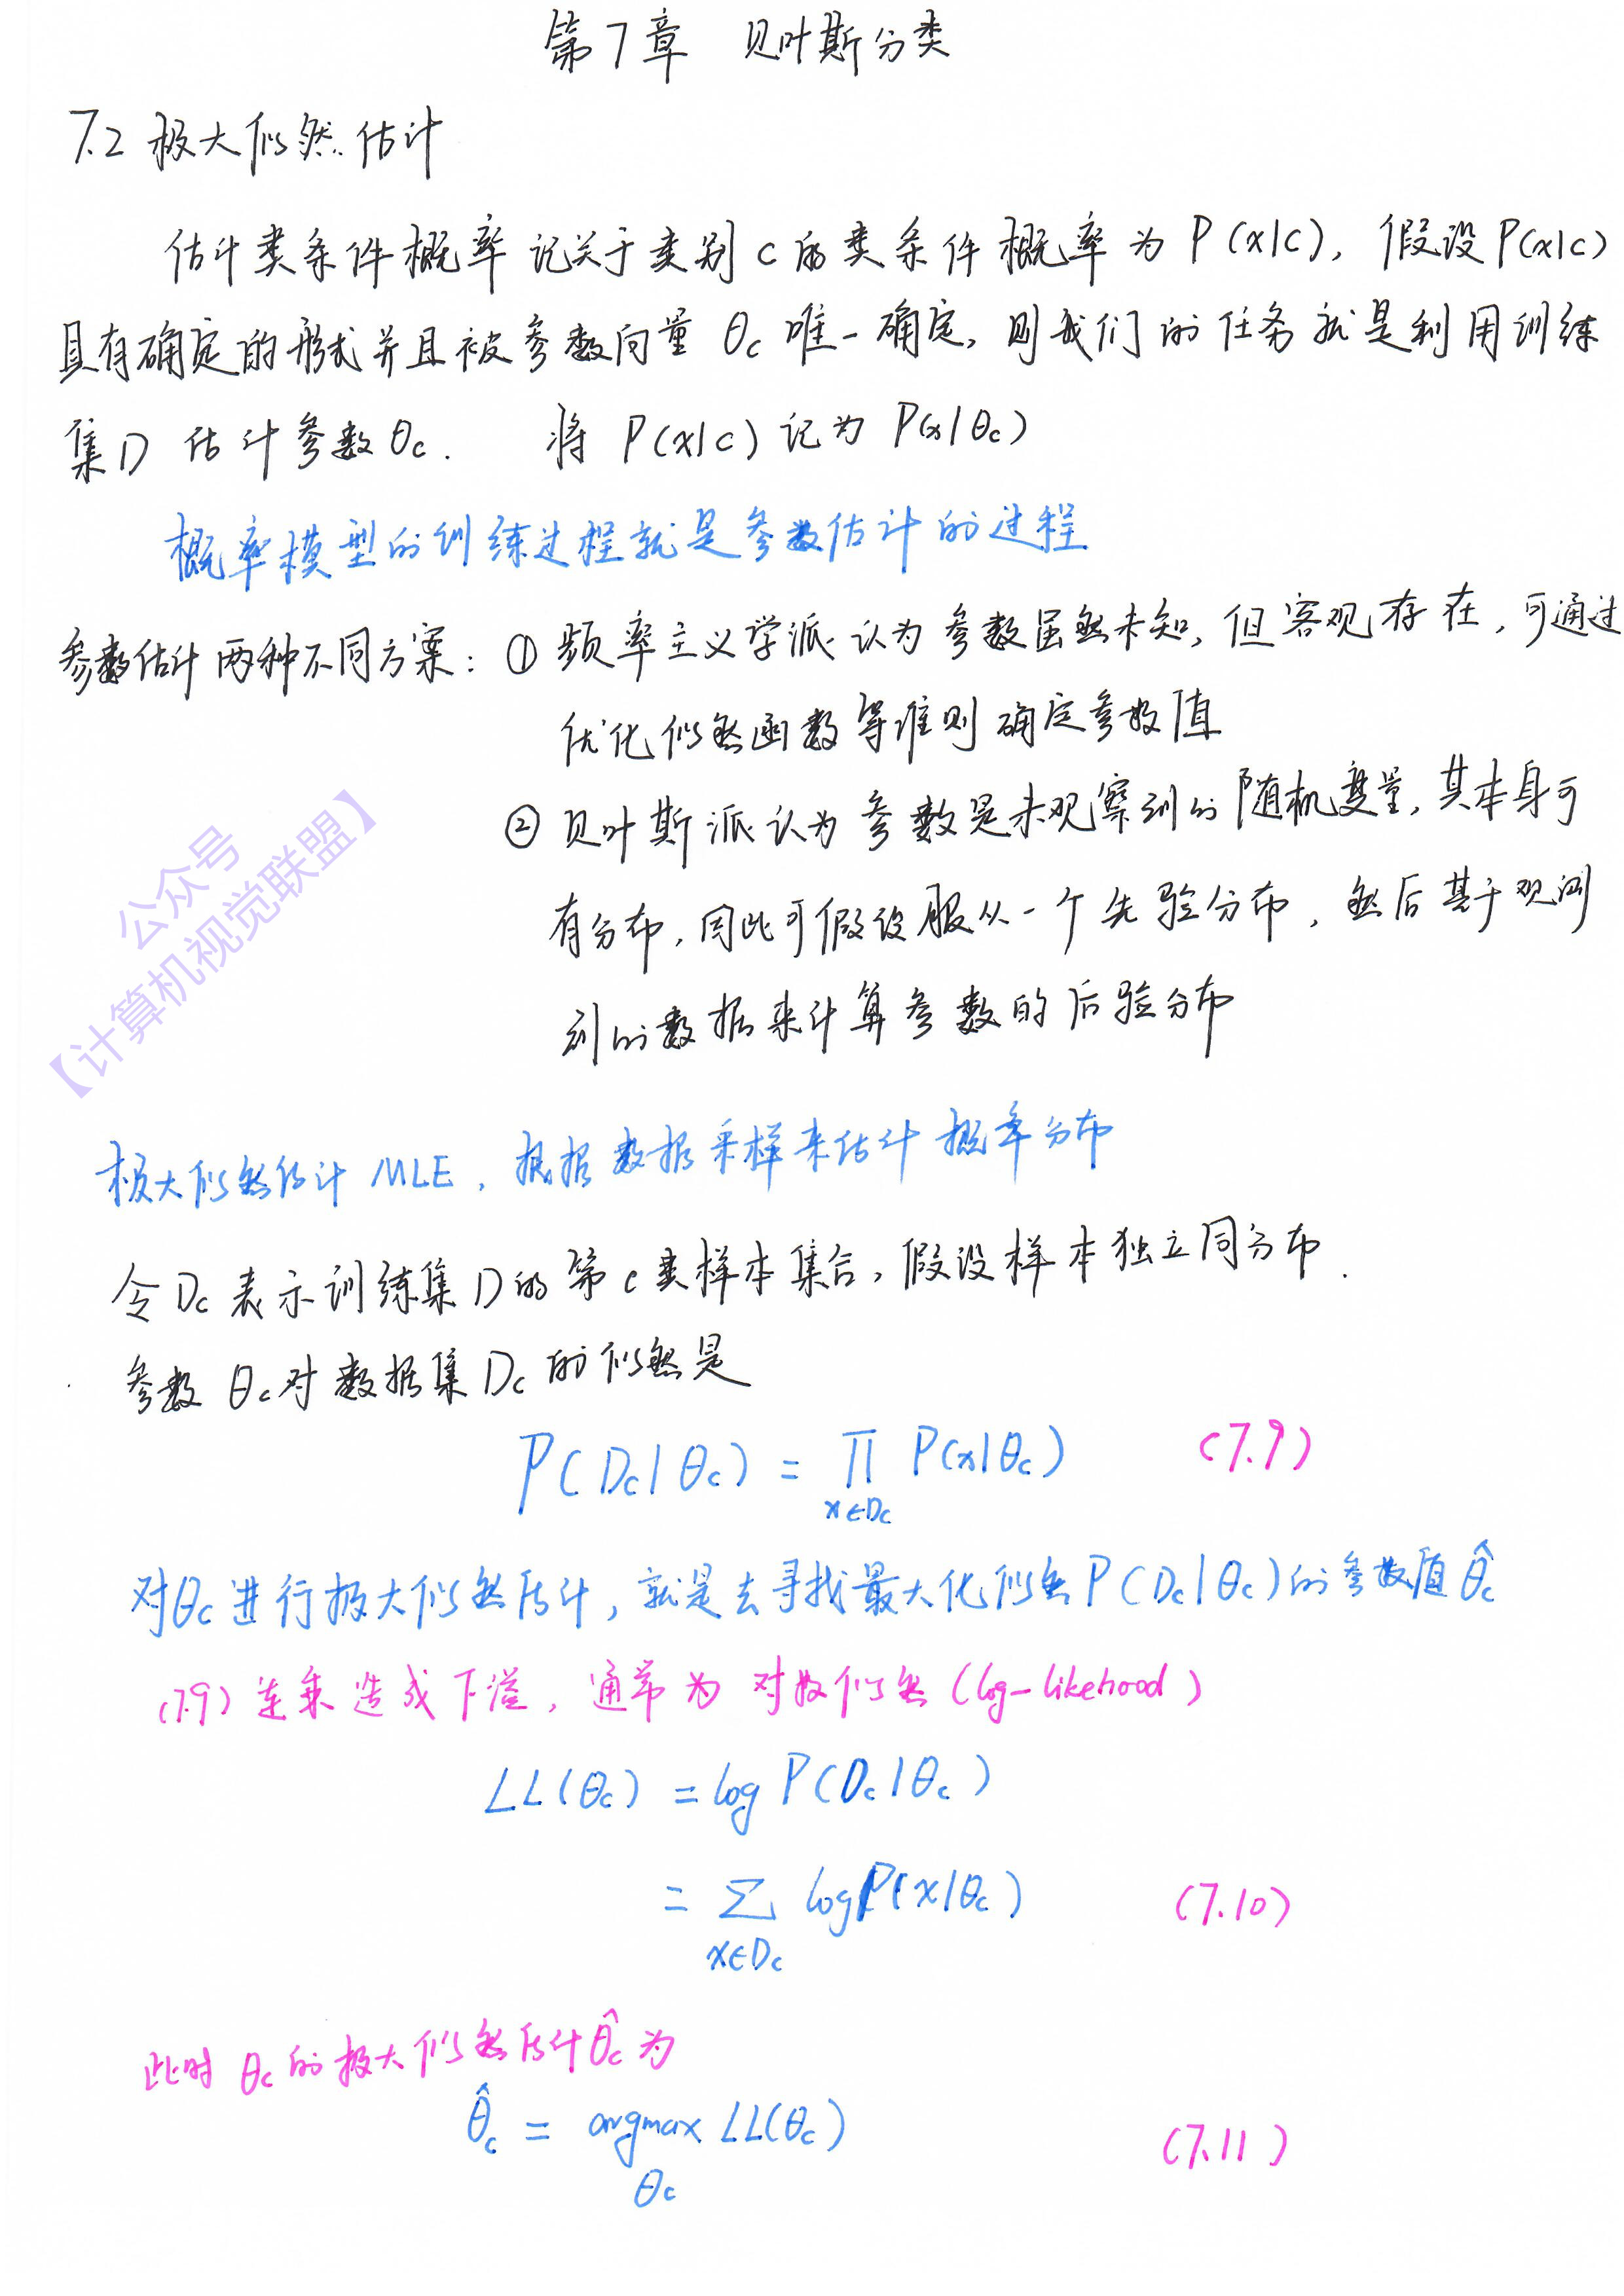 第7章 贝叶斯分类
7.2 极大似然估计
估计类条件概率 记关于类别 c 的类条件概率为 P(x|c), 假设P(x|c)
具有确定的形式并且被参数向量 θc 唯一确定, 则我们的任务就是利用训练
集D 估计参数θc. 将 P(x|c) 记为 P(x|θc)
概率模型的训练过程就是参数估计的过程
参数估计两种不同方案: ① 频率主义学派认为参数虽然未知, 但客观存在, 可通过
优化似然函数等准则确定参数值
② 贝叶斯派认为参数是未观察到的随机变量, 其本身可
有分布, 因此可假设服从一个先验分布, 然后基于观测
到的数据来计算参数的后验分布
公众号
【计算机视觉联盟】
极大似然估计 MLE, 根据数据采样来估计概率分布
令Dc表示训练集D的第c类样本集合, 假设样本独立同分布.
参数θc对数据集Dc的似然是
P(Dc|θc) = ∏ P(x|θc) (7.9)
x∈Dc
对θc进行极大似然估计, 就是去寻找最大化似然P(Dc|θc)的参数值θ̂c
(7.9) 连乘造成下溢, 通常为 对数似然 (log-likehood)
LL(θc) = log P(Dc|θc)
= ∑ log P(x|θc) (7.10)
x∈Dc
此时 θc的极大似然估计θ̂c为
θ̂c = argmax LL(θc) (7.11)
θc